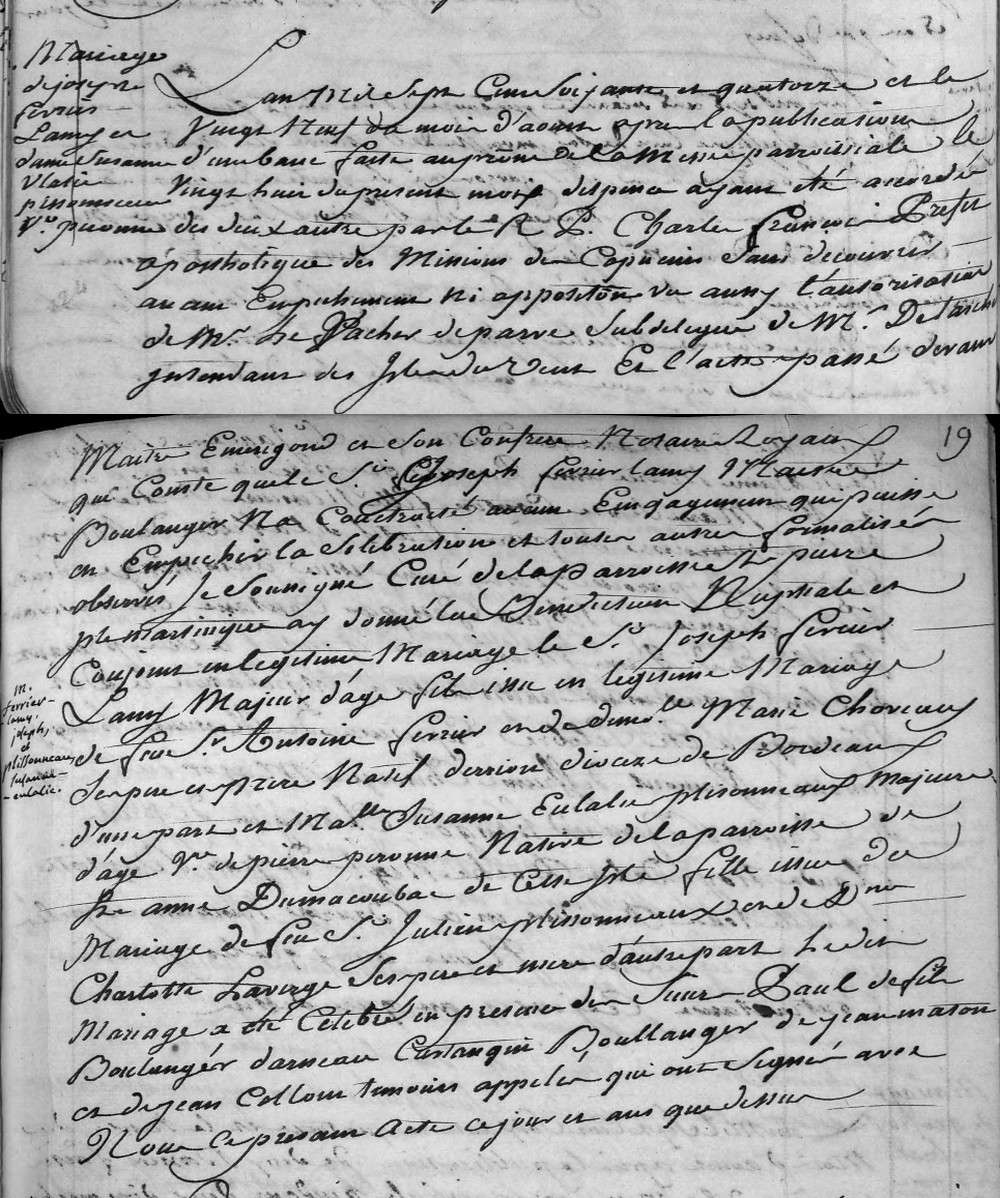 Mariage
de joseph
ferrier
Lamy et
dame Susanne
Ulalie
plisonneaux
Ve. peronne
Lan Mil Sept Cent Soixante et quatorze et le
Vingt Neuf du mois d'aoust apres la publication
d'un banc faite au prone de la Messe parroissiale le
Vingt huit du present mois dispence ayant été accordée
des deux autre par le R. P. Charle francois Prefet
apostholique des Missions des Capucins Sans decouvrir
aucun Empechement ni opposition vu aussy l'autorisation
de Mr. Le Vacher de parre Subdelegué de Mr. De
jntendant des Isles du Vent Et l'acte passé devant
19
Maitre Emerigond et Son Confrere Notaire Royaux
qui Conste que le Sr. Joseph ferrier lamy Maitre
Boulanger Na Contracté aucun Engagement qui puisse
en Empecher la Celebration et toutes autres formalités
observés Je Soussigné Curé de la parroisse St pierre
jle martinique ay donné la Benediction Nuptiale et
Conjoint en legitime Mariage le Sr. Joseph ferrier
Lamy Majeur d'age fils issu en legitime Mariage
de feu Sr Antoine ferrier et de demlle Marie Choreaux
Ses pere et Mere Natif dioceze de Bordeaux
d'une part et Malle Susanne Eulalie plisonneaux Majeure
d'age Ve de pierre peronne Native de la parroisse de
Ste anne Dumacoubac de Cette Isle fille issue du
Mariage de feu Sr. Julien plissonneaux et de Dme
Charlotte Laverge Ses pere et mere d'autre part Ledit
Mariage a été Célébré en presence des Sieurs Paul
Boulangér darneau Boullanger de jean maton
et de jean Collout temoins appelés qui ont Signés avec
Nous Ce present Acte ce jour et ans que dessus
m.
ferrier-
lamy.
joseph,
et
plissonneaux
susanne-
-eulalie.